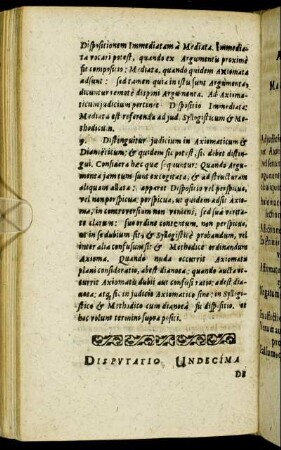 Dispositionem Immediatam à Mediata. Immedia-
ta vocari potest, quando ex Argumentis proximè
fit compositio: Mediata, quando quidem Axiomata
adsunt: sed tamen quia in istis sunt Argumenta,
dicuntur remotè disponi Argumenta. Ad Axioma-
ticum judicium pertinet Dispositio Immediata:
Mediata est referenda ad jud. Syllogisticum &
Methodicum.
9. Distinguitur judicium in Axiomaticum &
Dianoëticum: & quidem sic potest, sic debet distin-
gui. Consuëra hæc quæ sequuntur. Quando Argu-
menta jam tum sunt excogitata, & ad structuram
aliquam allata: apparet Dispositio vel perspicua,
vel non perspicua: perspicua, ut quidem adsit Axio-
ma, in controversiam non veniens, sed sua verita-
te clarum: sine ordine contentum, non perspicua,
ut in se dubium sit, & Syllogisticè probandum, vel
inter alia confusum sit & Methodicè ordinandum
Axioma. Quando nuda occurrit Axiomatis
plani consideratio, abest dianoea: quando aucta oc-
currit Axiomatis dubii aut confusi ratio; adest dia-
noea; atq, sic in judicio Axiomatico sine; in Syllogi-
stico & Methodico cum dianoeâ fit dispositio. et
hoc volunt termini supra positi.
DISPVTATIO UNDECIMA
DE